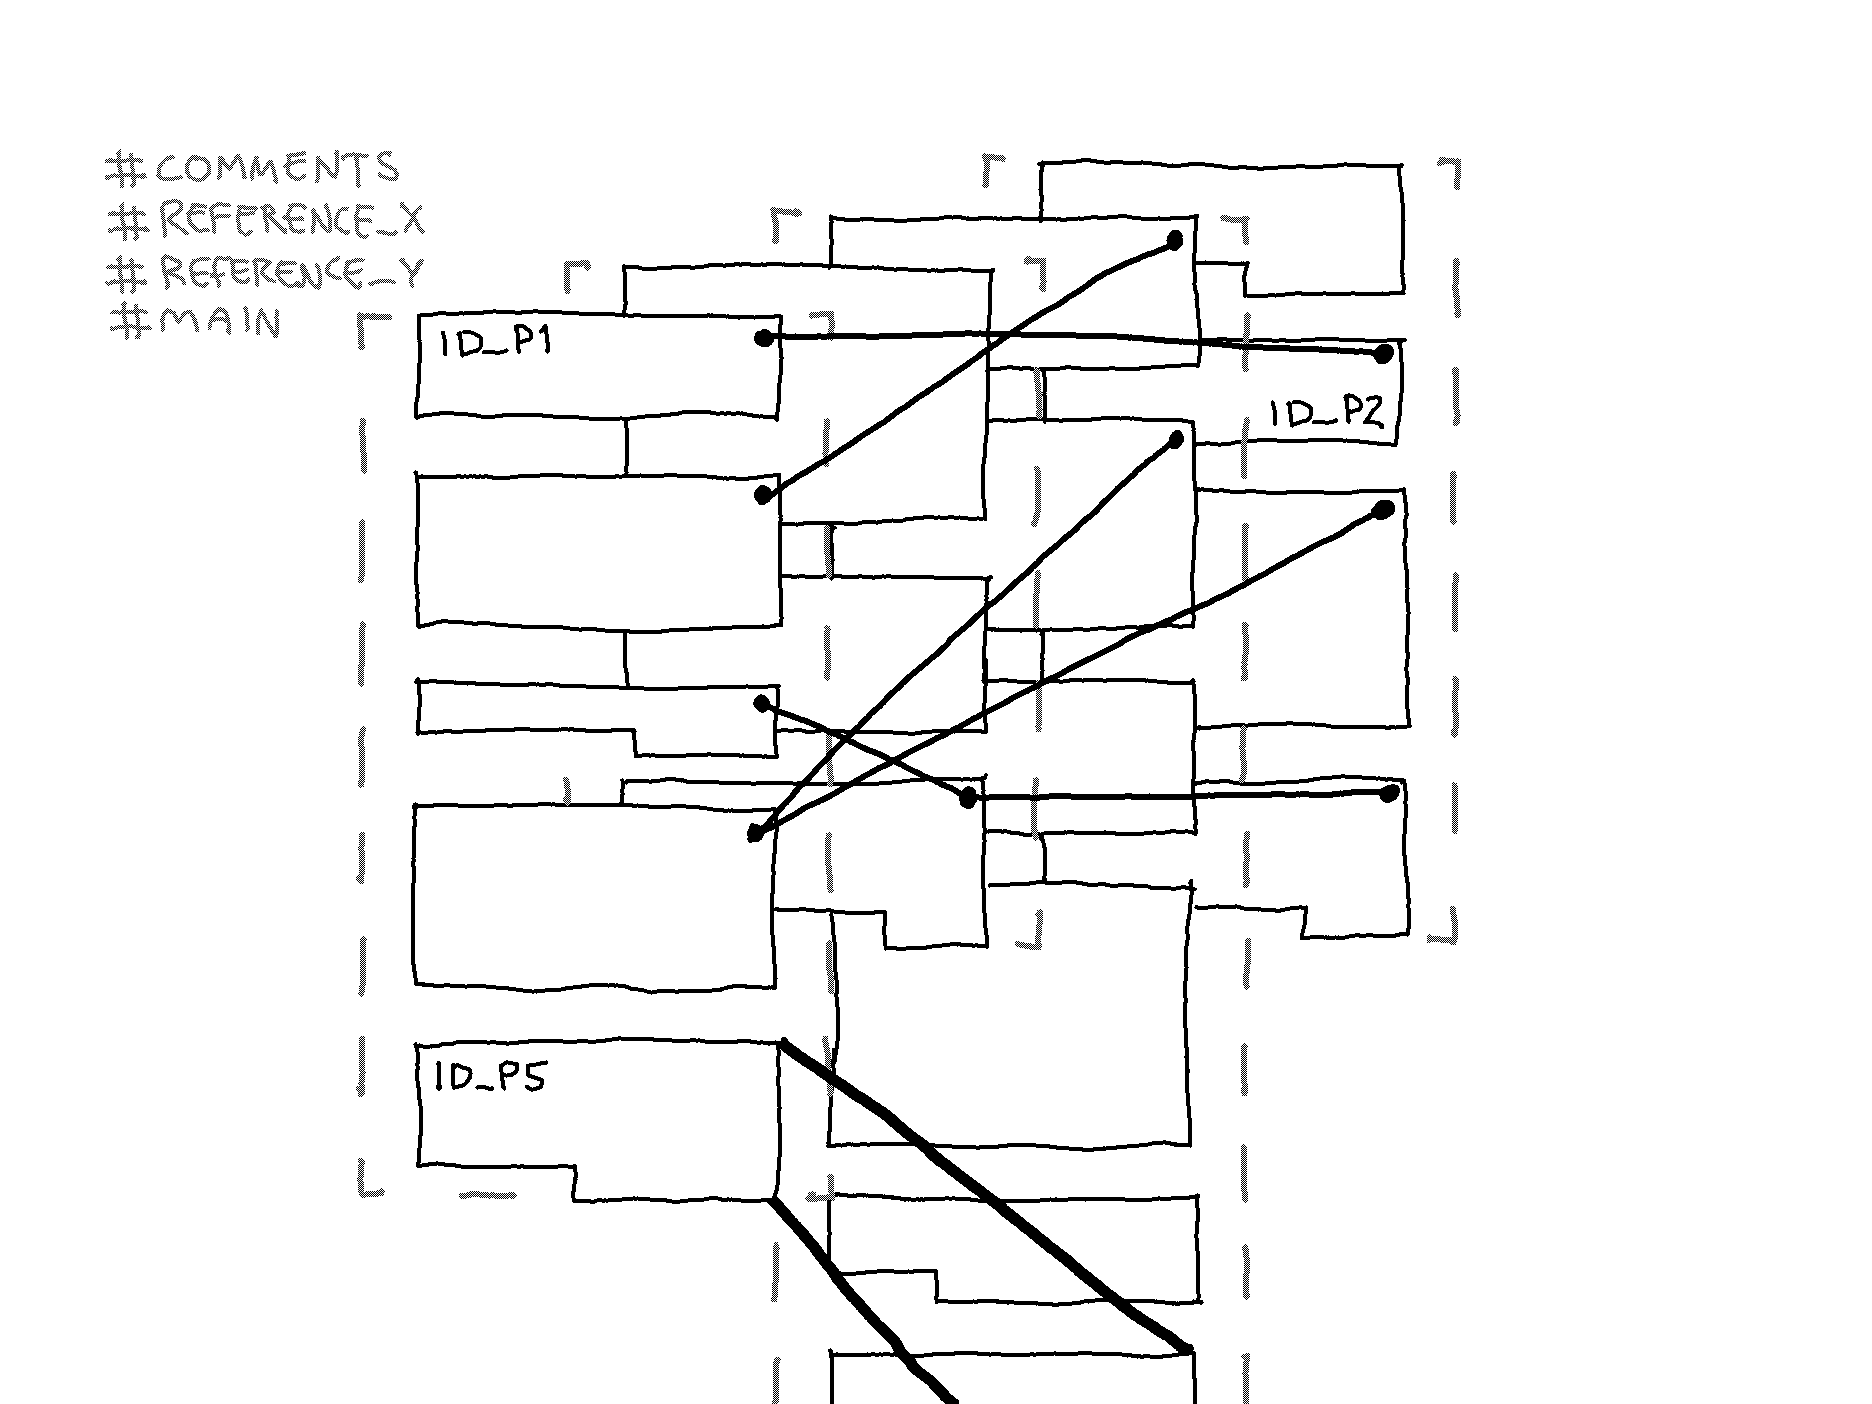 #COMMENTS
#REFERENCE_X
#REFERENCE_Y
#MAIN
ID_P1
ID_P2
ID_P5